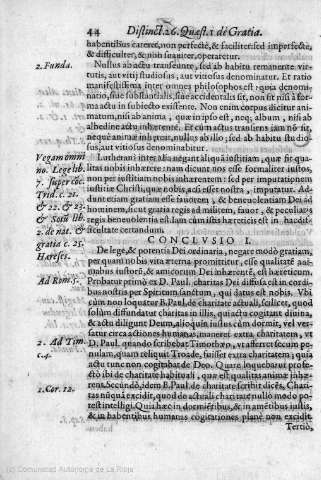 44 Distinct. 26. Quæst. 1 de Gratia.
habentibus careret, non perfectè, & faciliter sed imperfectè,
& difficulter, & nisi suauiter, operaretur.
2. Funda. Nullus ab actu transeunte, sed ab habitu remanente vir-
tutis, aut vitij studiosus, aut vitiosus denominatur. Et ratio
manifestissima inter omnes philosophos est: quia denomi-
natio, siue substantialis, siue accidentalis sit, non fit nisi à for-
ma actu in subiecto existente. Non enim corpus dicitur ani-
matum, nisi ab anima, quæ in ipso est, neq; album, nisi ab
albedine actu inhærente. Et cùm actus transiens iam non sit,
neque animæ inhæreat, nullus ab isto; sed ab habitu studio-
sus, aut vitiosus denominabitur.
Vegam omni
no. Lege lib.
7. super conc.
Trid. c. 21.
& 22. & 23.
& Soto lib.
2. de nat. &
gratia c. 25.
Hæreses.
Lutherani inter alia negant aliquâ iustitiam, quæ sit qua-
litas nobis inhærens: nam dicunt nos esse formaliter iustos,
non per iustitiam nobis inhærentem: sed per imputationem
iustitiæ Christi, quæ nobis, ac si esset nostra, imputatur. Ad-
dunt etiam gratiam esse fauorem, & beneuolentiam Dei ad
hominem, sicut gratia regis ad militem, fauor, & peculiaris
regis beneuolentia est. Iam cum istis hæreticis est in hac dif-
ficultate certandum.
CONCLVSIO I.
De lege, & potentia Dei ordinaria, negare modò gratiam,
per quam nobis vita æterna promittitur, esse qualitatē ani-
mabus iustorū, & amicorum Dei inhærentē, est hæreticum.
Ad Rom. 5. Probatur primò ex D. Paul. charitas Dei diffusa est in cordi-
bus nostris per Spiritum sanctum, qui datus est nobis. Vbi
cùm non loquatur B. Paul. de charitate actuali, scilicet, quod
solùm diffundatur charitas in illis, qui actu cogitant diuina,
& actu diligunt Deum, alioqui iustus cùm dormit, vel ver-
satur circa actiones humanas, maneret extra charitatem, vt
2. Ad Tim
c. 4. D. Paul. quando scribebat Timotheo, vt afferret secum pe-
nulam, quam reliquit Troade, fuisset extra charitatem; quia
actu tunc non cogitabat de Deo. Quare loquebatur profe-
ctò ibi de charitate habituali, quæ est qualitas animæ inhæ-
2. Cor. 12. rens. Secundò, idem B. Paul. de charitate scribit dicēs, Chari-
tas nūquā excidit, quod de actuali charitate nullo modo po-
test intelligi. Quia hæc in dormiētibus, & in amētibus iustis,
& in habentibus humanas cogitationes planè non excidit.
Tertiò,
(c) Comunidad Autónoma de La Rioja